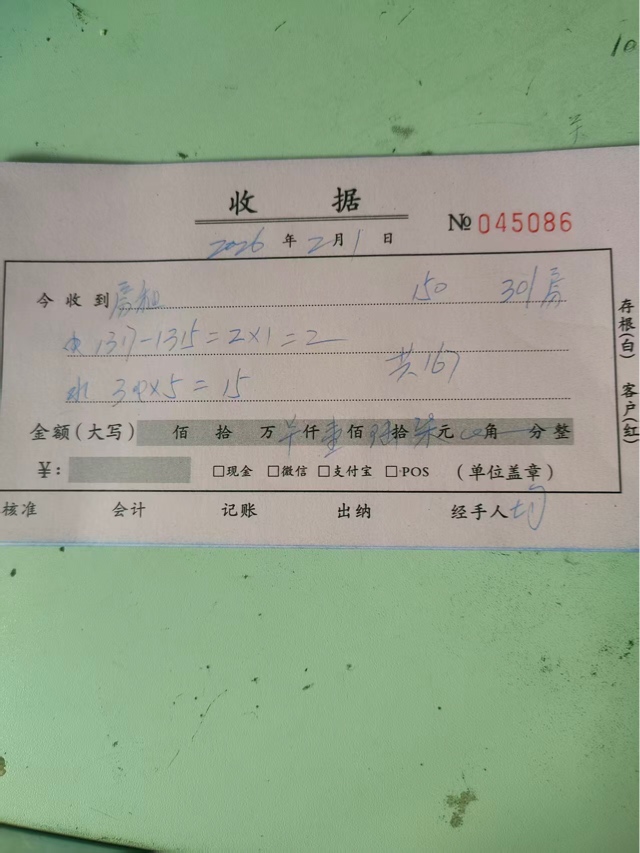 10
收 据
№ 045086
2026 年 2 月 1 日
今收到 房租 150 301房
电 1317-1315=2×1=2
共167
水 3吨×5=15
金额(大写) 佰 拾 万 仟 壹佰 陆拾 柒元 角 分 整
¥: □现金 □微信 □支付宝 □POS (单位盖章)
核准 会计 记账 出纳 经手人
存根(白) 客户(红)